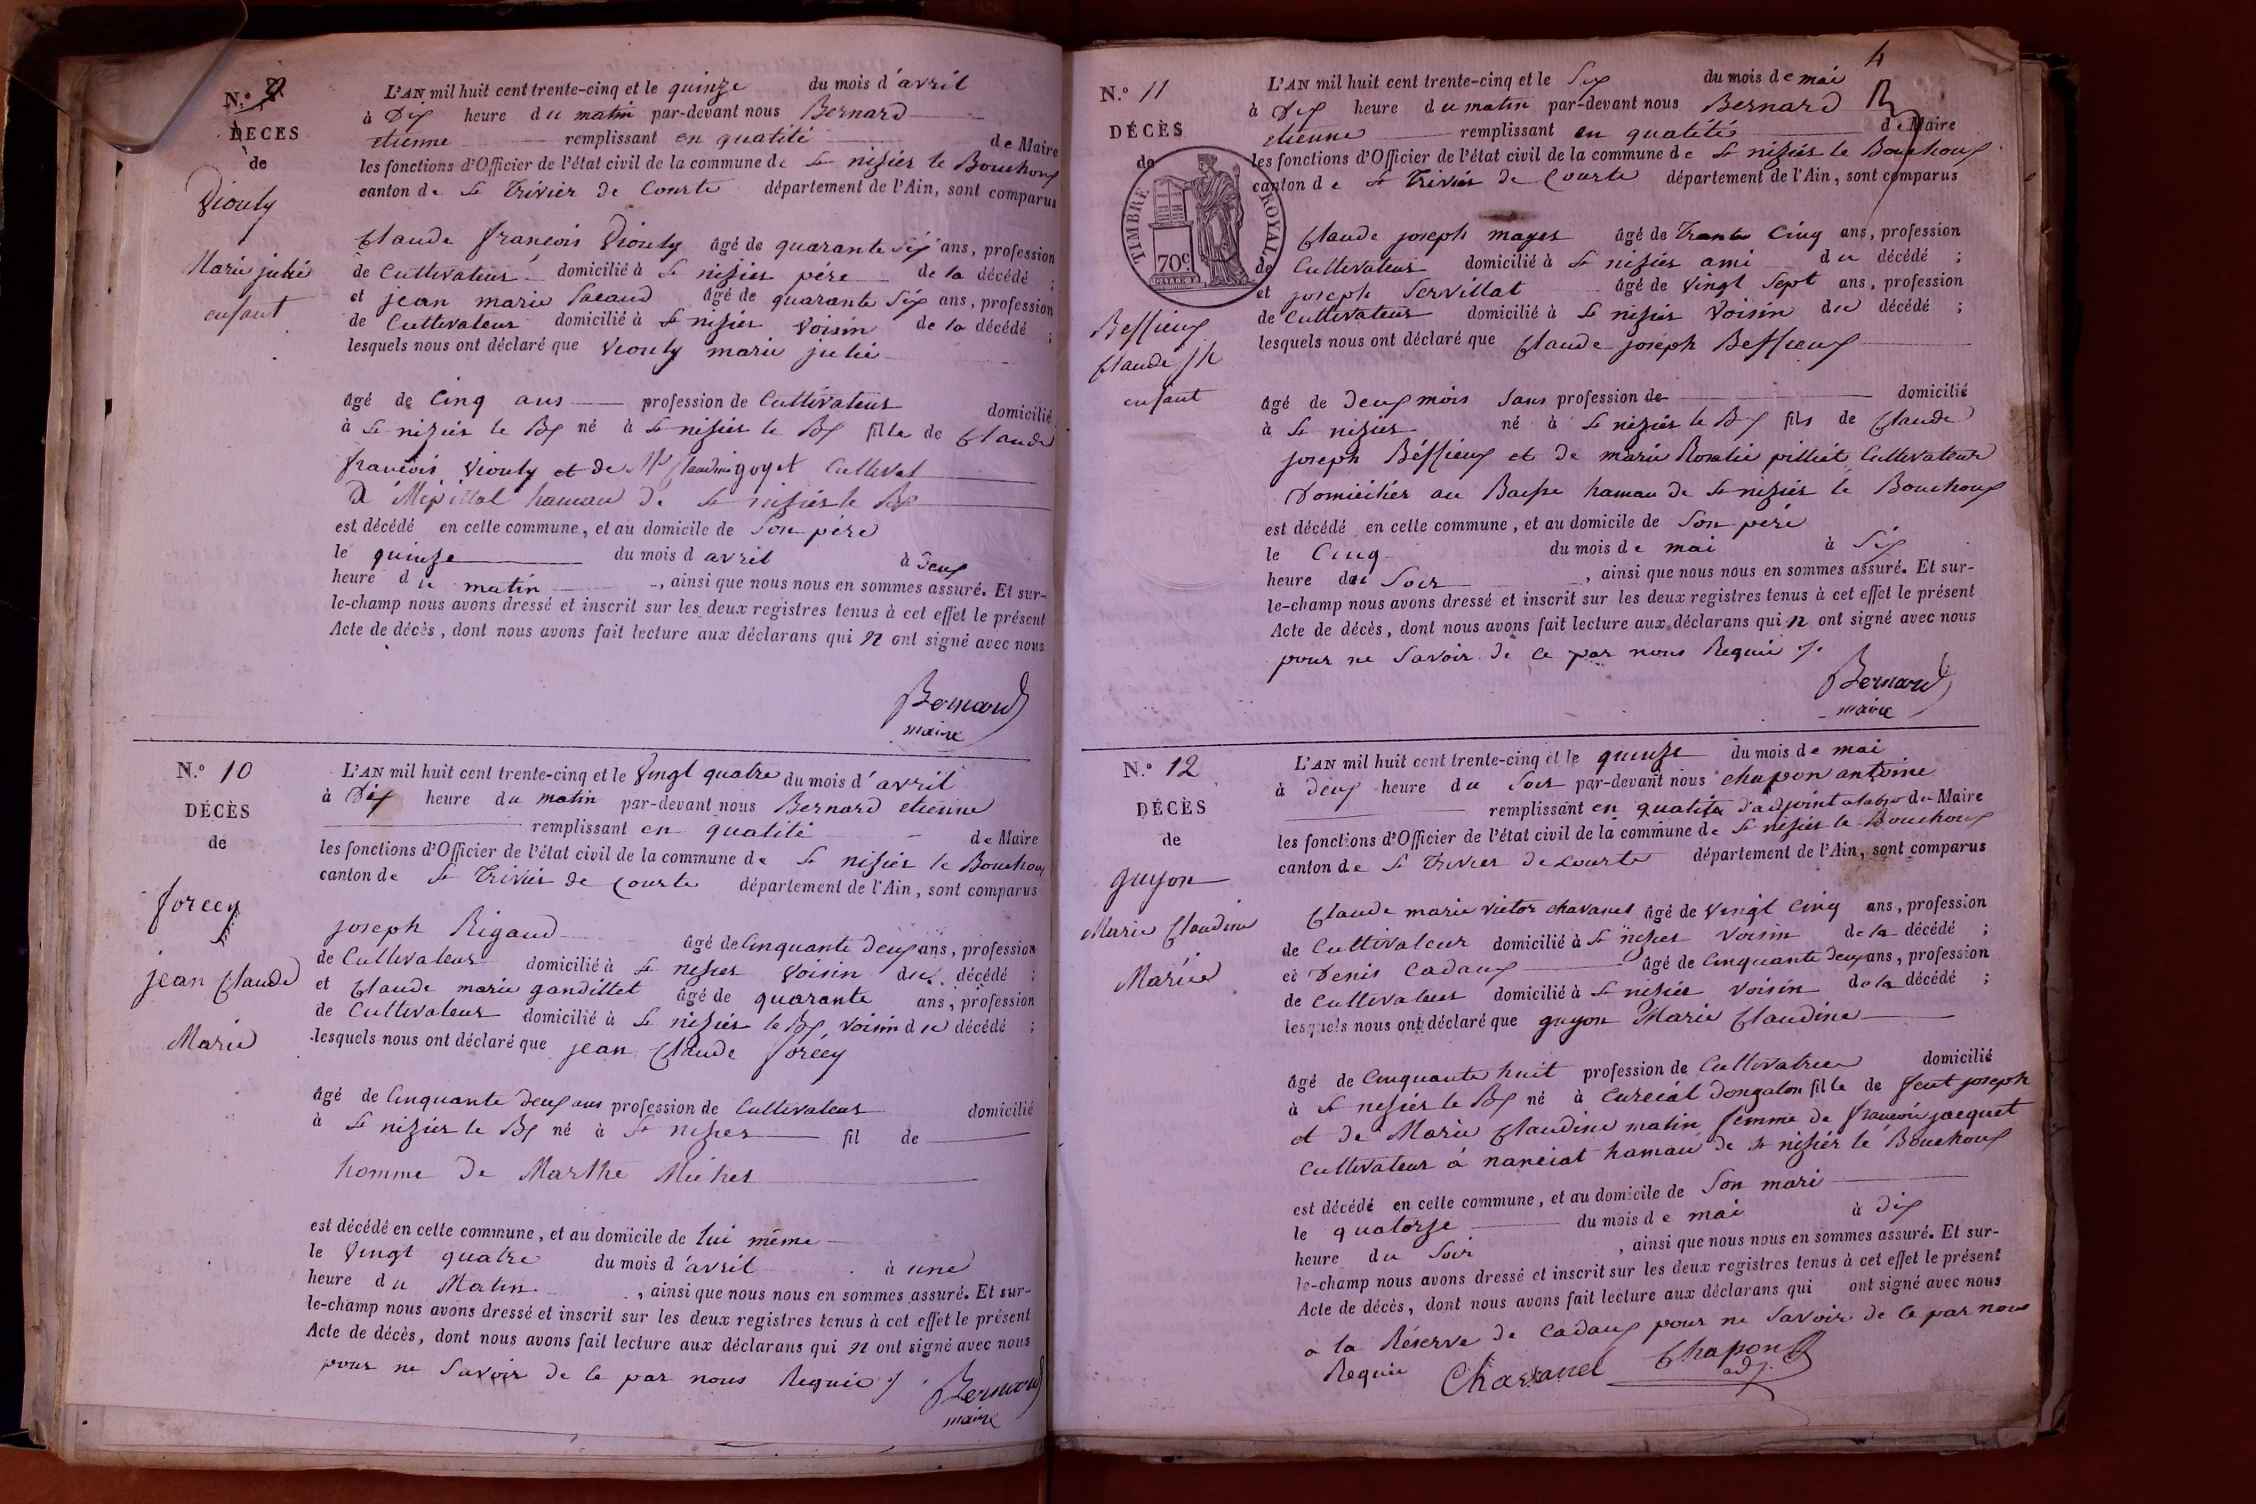 N.º 9
DÉCES
de
Viouly
Marie julie
enfant
L'AN mil huit cent trente-cinq et le quinze du mois d'avril
à Dix heure du matin par-devant nous Bernard
etienne remplissant en qualité de Maire
les fonctions d'Officier de l'état civil de la commune de St nisier le Bouchoux
canton de St Trivier de Courte département de l'Ain, sont comparus
Claude françois Viouly âgé de quarante Six ans, profession
de Cultivateur domicilié à St nisier père de la décédé ;
et jean marie Pacaud âgé de quarante Six ans, profession
de Cultivateur domicilié à St nisier Voisin de la décédé ;
lesquels nous ont déclaré que Viouly marie julie
âgé de Cinq ans profession de Cultivateur domicilié
à St nisier le Bx né à St nisier le Bx fille de Claude
françois Viouly et de Me Claudine goyet Cultivat
à Mépillat hameau de St nisier le Bx
est décédé en cette commune, et au domicile de Son père
le quinze du mois d avril à Deux
heure du matin, ainsi que nous nous en sommes assuré. Et sur-
le-champ nous avons dressé et inscrit sur les deux registres tenus à cet effet le présent
Acte de décès, dont nous avons fait lecture aux déclarans qui n ont signé avec nous
Bernard
maire
N.º 10
DÉCÈS
de
forcey
jean Claude
Marié
L'AN mil huit cent trente-cinq et le Vingt quatre du mois d'avril
à Dix heure du matin par-devant nous Bernard etienne
remplissant en qualité de Maire
les fonctions d'Officier de l'état civil de la commune de St nisier le Bouchoux
canton de St Trivier de Courte département de l'Ain, sont comparus
joseph Rigaud âgé de Cinquante deux ans, profession
de Cultivateur domicilié à St nisier Voisin du décédé ;
et Claude marie gandillet âgé de quarante ans, profession
de Cultivateur domicilié à St nisier le Bx Voisin du décédé ;
lesquels nous ont déclaré que jean Claude forcey
âgé de Cinquante Deux ans profession de Cultivateur domicilié
à St nisier le Bx né à St nisier fil de
homme de Marthe Michel
est décédé en cette commune, et au domicile de lui même
le Vingt quatre du mois d'avril à une
heure du Matin, ainsi que nous nous en sommes assuré. Et sur-
le-champ nous avons dressé et inscrit sur les deux registres tenus à cet effet le présent
Acte de décès, dont nous avons fait lecture aux déclarans qui n ont signé avec nous
pour ne Savoir de ce par nous Requis
Bernard
maire
4
N.º 11
DÉCÈS
de
TIMBRE ROYAL
70 c.
Beffieux
Claude jh
enfant
L'AN mil huit cent trente-cinq et le Six du mois de mai
à Dix heure du matin par-devant nous Bernard
etienne remplissant en qualité de Maire
les fonctions d'Officier de l'état civil de la commune de St nisier le Bouchoux
canton de St Trivier de Courte département de l'Ain, sont comparus
Claude joseph mayet âgé de Trente Cinq ans, profession
de Cultivateur domicilié à St nisier ami du décédé ;
et joseph Servillat âgé de Vingt Sept ans, profession
de Cultivateur domicilié à St nisier Voisin du décédé ;
lesquels nous ont déclaré que Claude joseph Beffieux
âgé de Deux mois Sans profession de domicilié
à St nisier né à St nisier le Bx fils de Claude
joseph Béffieux et de marie Rosalie pilliat Cultivateur
Domiciliés au Baisse hamau de St nisier le Bouchoux
est décédé en cette commune, et au domicile de Son père
le Cinq du mois de mai à Six
heure du Soir, ainsi que nous nous en sommes assuré. Et sur-
le-champ nous avons dressé et inscrit sur les deux registres tenus à cet effet le présent
Acte de décès, dont nous avons fait lecture aux déclarans qui n ont signé avec nous
pour ne Savoir de ce par nous Requis
Bernard
maire
N.º 12
DÉCÈS
de
guyon
Marie Claudine
Mariée
L'AN mil huit cent trente-cinq et le quinze du mois de mai
à deux heure du Soir par-devant nous chapon antoine
remplissant en qualité d'adjoint du Maire
les fonctions d'Officier de l'état civil de la commune de St nisier le Bouchoux
canton de St Trivier de Courte département de l'Ain, sont comparus
Claude marie victor chavanel âgé de Vingt Cinq ans, profession
de Cultivateur domicilié à St nisier Voisin de la décédé ;
et Denis Cadaux âgé de Cinquante deux ans, profession
de Cultivateur domicilié à St nisier Voisin de la décédé ;
lesquels nous ont déclaré que guyon Marie Claudine
âgé de Cinquante huit profession de Cultivatrice domicilié
à St nisier le Bx né à Curciat Dongalon fille de feut joseph
et de Marie Claudine matin femme de françois jacquet
Cultivateur à nanciat hamau de St nisier le Bouchoux
est décédé en cette commune, et au domicile de Son mari
le quatorze du mois de mai à dix
heure du Soir, ainsi que nous nous en sommes assuré. Et sur-
le-champ nous avons dressé et inscrit sur les deux registres tenus à cet effet le présent
Acte de décès, dont nous avons fait lecture aux déclarans qui ont signé avec nous
a la Réserve de Cadaux pour ne Savoir de ce par nous
Requis Chavanel Chapon
adj.